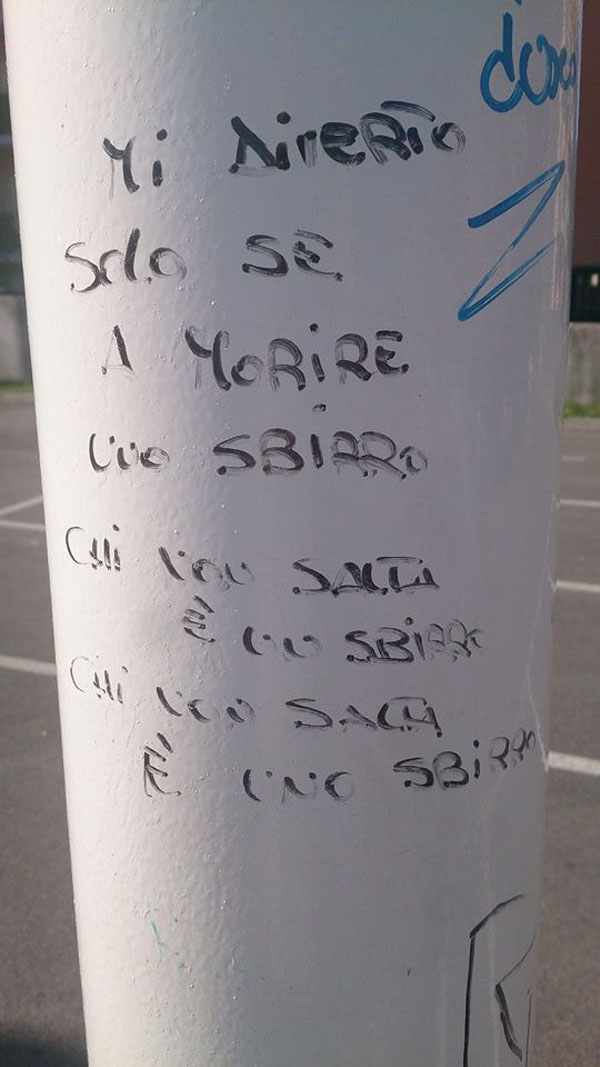 Mi DiVERTO
Solo SE
A MORiRE
UNO SBiRRO
CHi NON SALTA
È UNO SBiRRO
CHi NON SALTA
È UNO SBiRRO